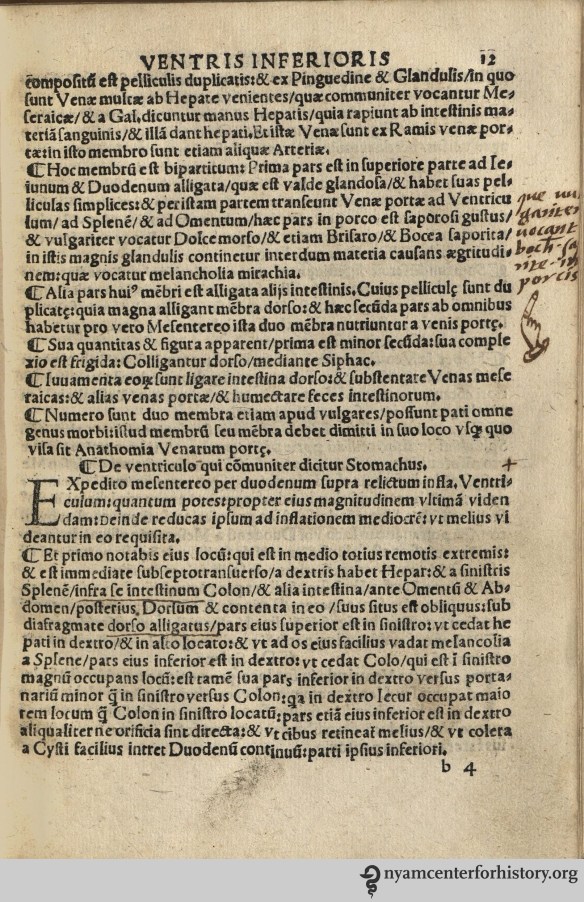 VENTRIS INFERIORIS 12
cōpositū est pelliculis duplicatis:& ex Pinguedine & Glandulis/in quo
sunt Venæ multæ ab Hepate venientes/quæ communiter vocantur Me-
seraicæ/& a Gal. dicuntur manus Hepatis/quia rapiunt ab intestinis ma-
teriā sanguinis/& illā dant hepati. Et istæ Venæ sunt ex Ramis venæ por-
tæ: in isto membro sunt etiam aliquæ Arteriæ.
¶ Hoc membrū est bipartitum: Prima pars est in superiore parte ad Ie-
iunum & Duodenum alligata/quæ est valde glandosa/& habet suas pel-
liculas simplices:& per istam partem transeunt Venæ portæ ad Ventricu
lum/ad Splenē/& ad Omentum/hæc pars in porco est saporosi gustus/
& vulgariter vocatur Dolce morso/& etiam Brisaro/& Bocea saporita/
in istis magnis glandulis continetur interdum materia causans ægritudi-
nem: quæ vocatur melancholia mirachia.
¶ Alia pars huiꝰ mēbri est alligata alijs intestinis. Cuius pelliculę sunt du
plicatę: quia magna alligant mēbra dorso:& hæc secūda pars ab omnibus
habetur pro vero Mesentereo ista duo mēbra nutriuntur a venis portę.
¶ Sua quantitas & figura apparent/prima est minor secūda: sua comple
xio est frigida: Colligantur dorso/mediante Siphac.
¶ Iuuamenta eoꝝ sunt ligare intestina dorso:& substentare Venas mese
raicas:& alias venas portæ/& humectare feces intestinorum.
¶ Numero sunt duo membra etiam apud vulgares/possunt pati omne
genus morbi: istud membrū seu mēbra debet dimitti in suo loco vsq̄ quo
visa sit Anathomia Venarum portę.
¶ De ventriculo qui cōmuniter dicitur Stomachus. +
EXpedito mesentereo per duodenum supra relictum infla. Ventri-
culum: quantum potes: propter eius magnitudinem vltimā viden
dam: Deinde reducas ipsum ad inflationem mediocrē: vt melius vi
deantur in eo requisita.
¶ Et primo notabis eius locū: qui est in medio totius remotis extremis:
& est immediate sub septo transuerso/a dextris habet Hepar:& a sinistris
Splenē/infra se intestinum Colon/& alia intestina/ante Omentū & Ab-
domen/posterius. Dorsum & contenta in eo/suus situs est obliquus: sub
diafragmate dorso alligatus/pars eius superior est in sinistro: vt cedat he
pati in dextro/& in alto locato:& vt ad os eius facilius vadat melancolia
a Splene/pars eius inferior est in dextro: vt cedat Colo/qui est ī sinistro
magnū occupans locū: est tamē sua pars inferior in dextro versus porta-
nariū minor q̄ in sinistro versus Colon: qa in dextro Iecur occupat maio
rem locum q̄ Colon in sinistro locatū: pars etiā eius inferior est in dextro
aliqualiter ne orificia sint directa:& vt cibus retineat̄ melius/& vt colera
a Cysti facilius intret Duodenū continuū: parti ipsius inferiori.
b 4
que vul
gariter
uocant
boch sa
rite in
porcis
nyamcenterforhistory.org